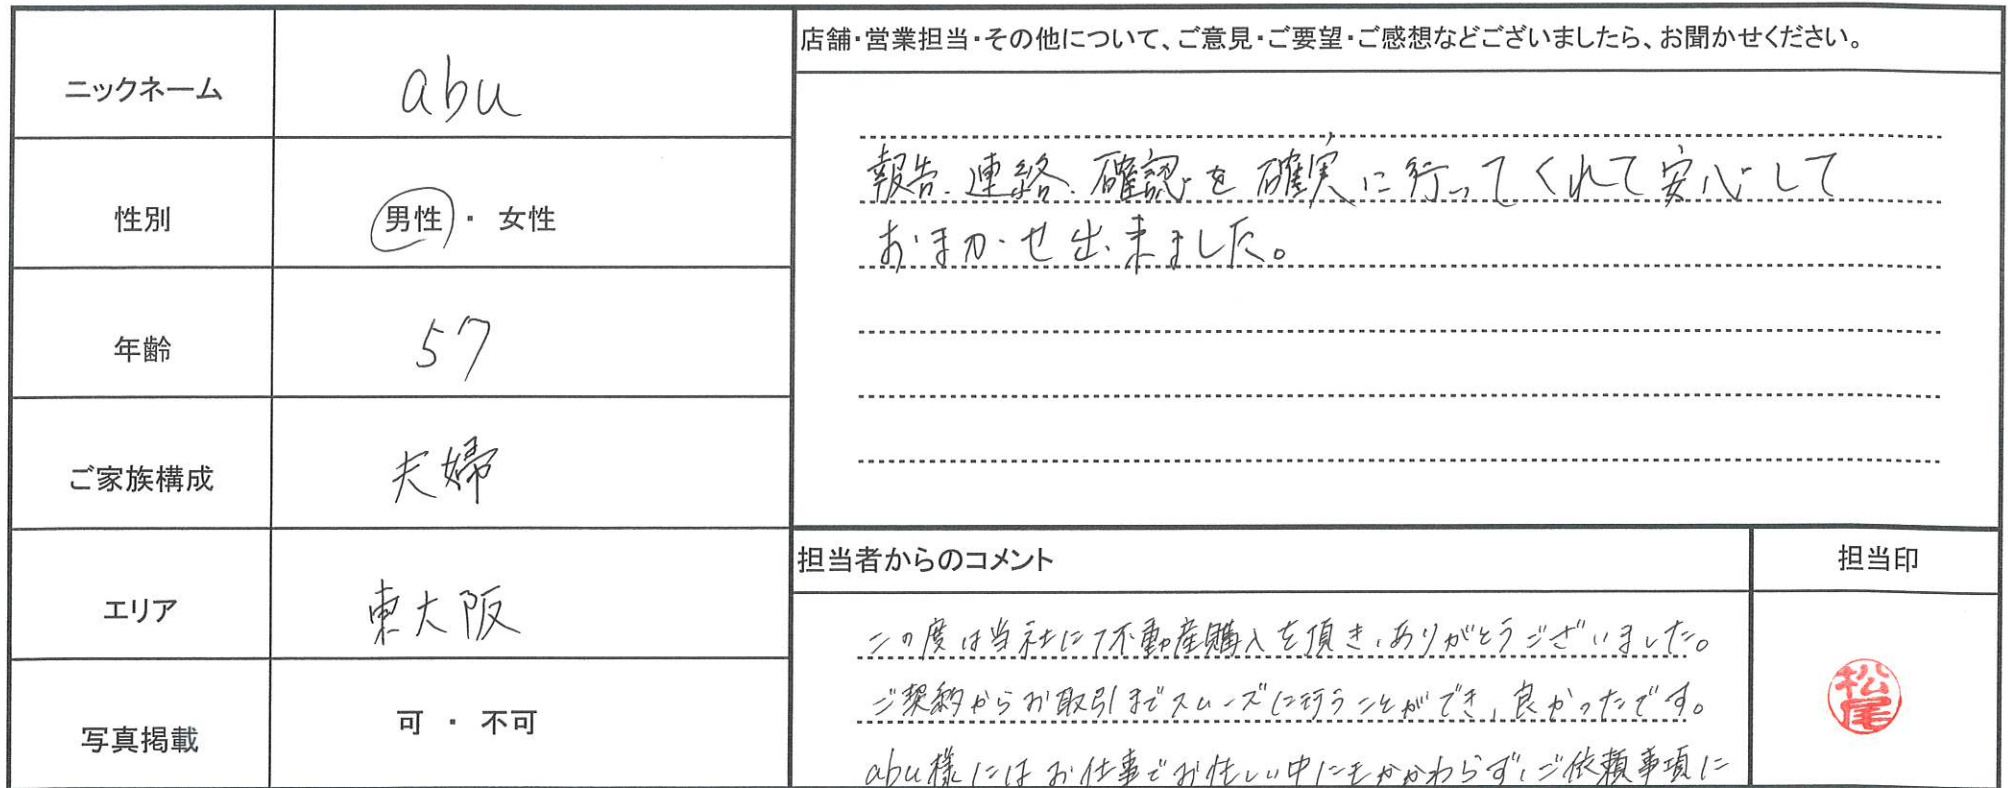 ニックネーム
abu
性別
男性 ・ 女性
年齢
57
ご家族構成
夫婦
エリア
東大阪
写真掲載
可 ・ 不可
店舗・営業担当・その他について、ご意見・ご要望・ご感想などございましたら、お聞かせください。
報告、連絡、確認を確実に行ってくれて安心して
おまかせ出来ました。
担当者からのコメント
この度は当社にて不動産購入を頂き、ありがとうございました。
ご契約からお取引までスムーズに行うことができ、良かったです。
abu様にはお仕事でお忙しい中にもかかわらず、ご依頼事項に
担当印
松尾